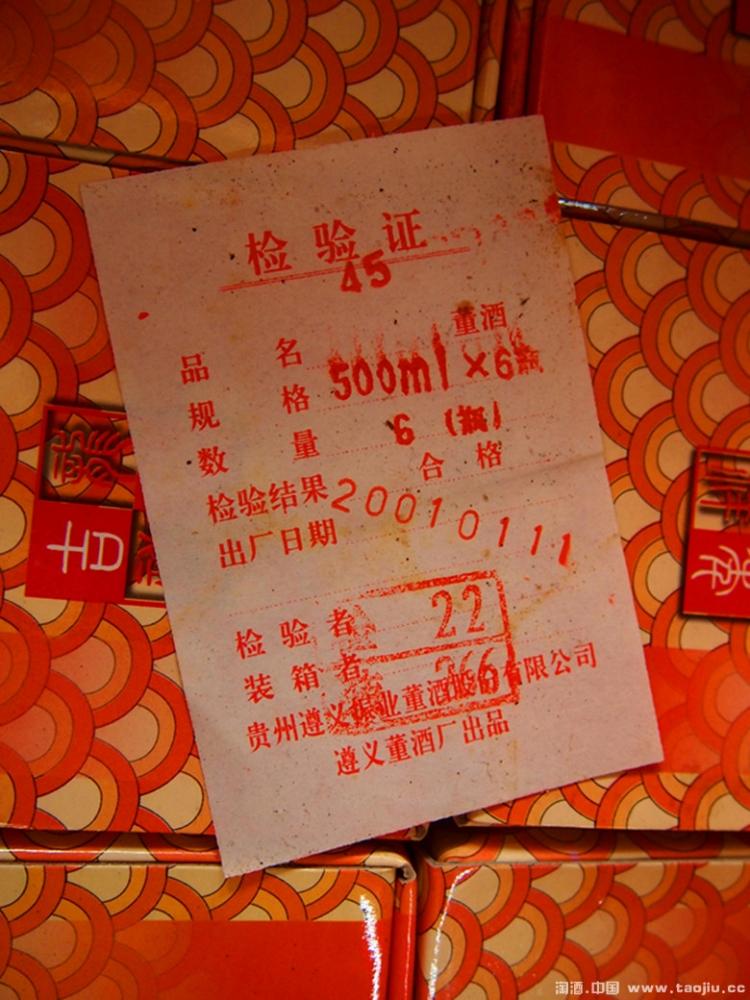 检验证
45
品名 董酒
规格 500ml×6瓶
数量 6(瓶)
检验结果 合格
出厂日期 20010111
检验者 22
装箱者 266
贵州遵义振业董酒股份有限公司
遵义董酒厂出品
吉
淘酒.中国 www.taojiu.cc